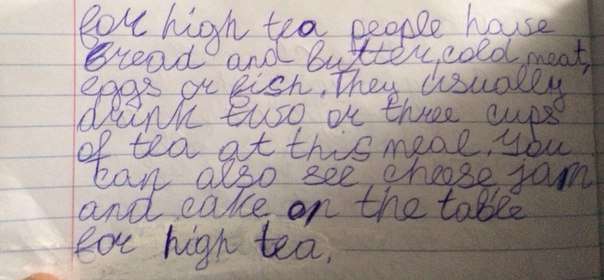 for high tea people have
bread and butter, cold meat,
eggs or fish. They usually
drink two or three cups
of tea at this meal. You
can also see cheese jam
and cake on the table
for high tea.